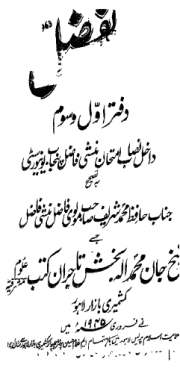 ابوالفضل
دفتر اوّل و سوم
داخل نصاب امتحان منشی فاضل پنجاب یونیورسٹی
بہ تصحیح
جناب حافظ محمد شریف صاحب مولوی فاضل منشی فاضل
جسے
شیخ جان محمد الہ بخش تاجران کتب علوم مشرقیہ
کشمیری بازار لاہور
نے فروری ۱۹۲۵ء میں